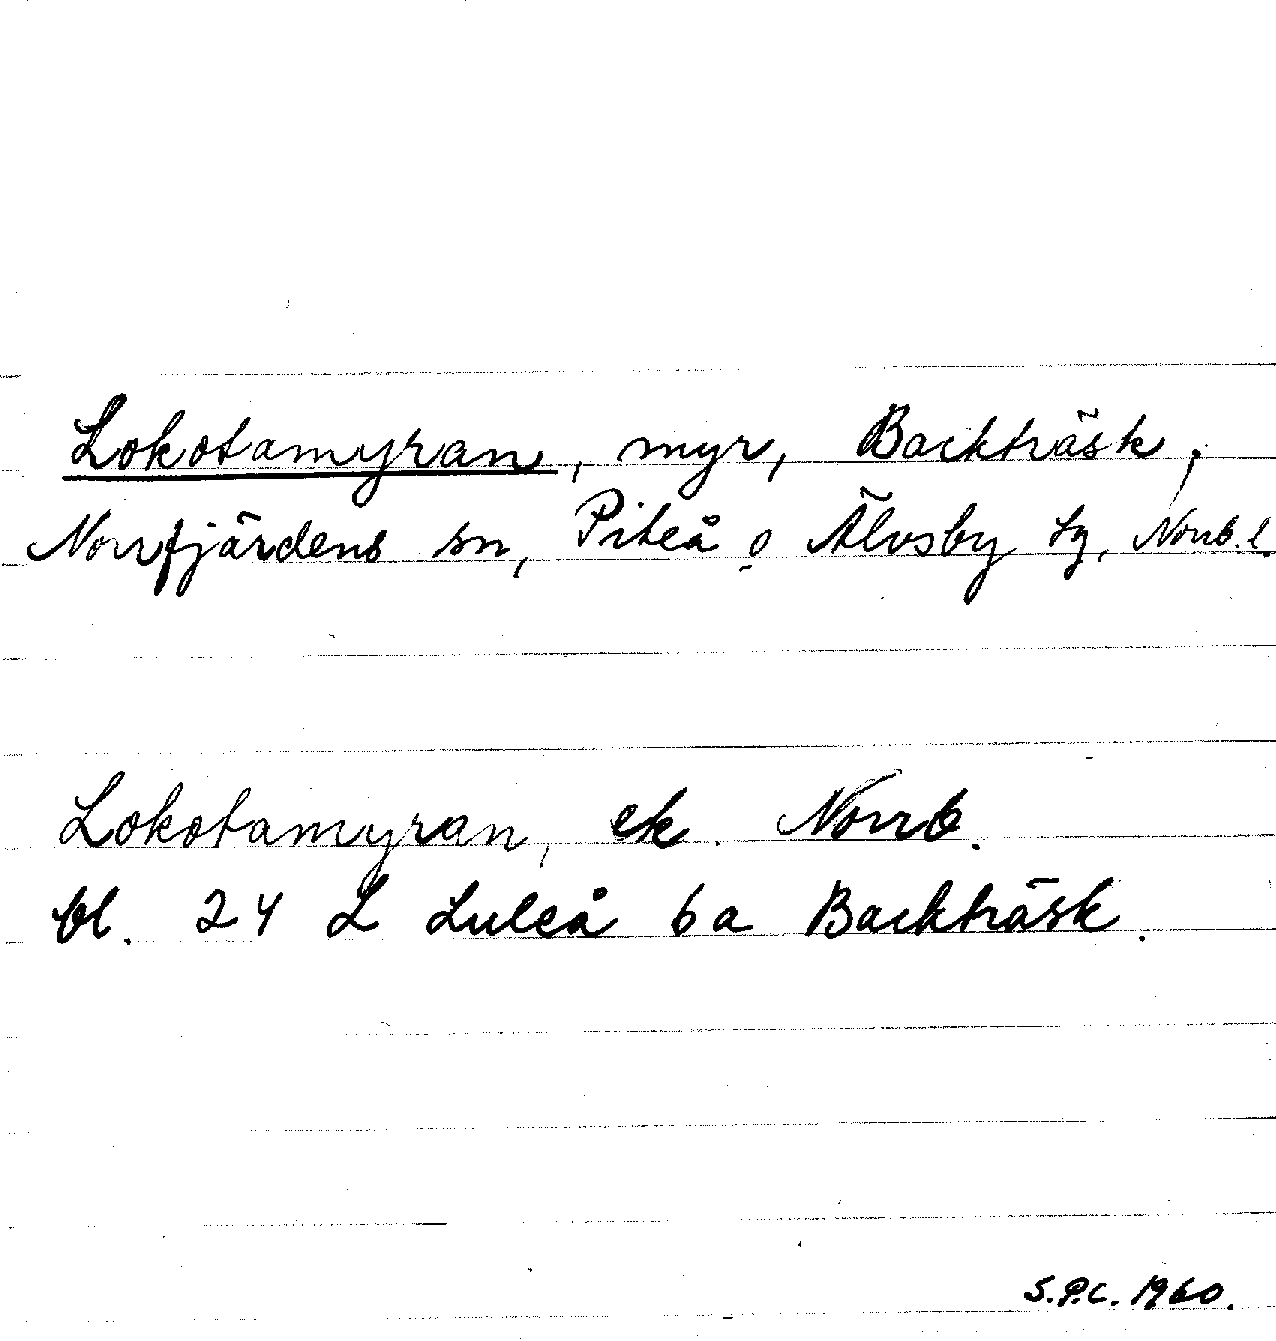 Lokotamyran, myr, Backträsk,
Norrfjärdens sn, Piteå o Älvsby tg, Norrb. l.
Lokotamyran, ek. Norrb.
bl. 24 L Luleå 6a Backträsk.
S.P.C. 1960.